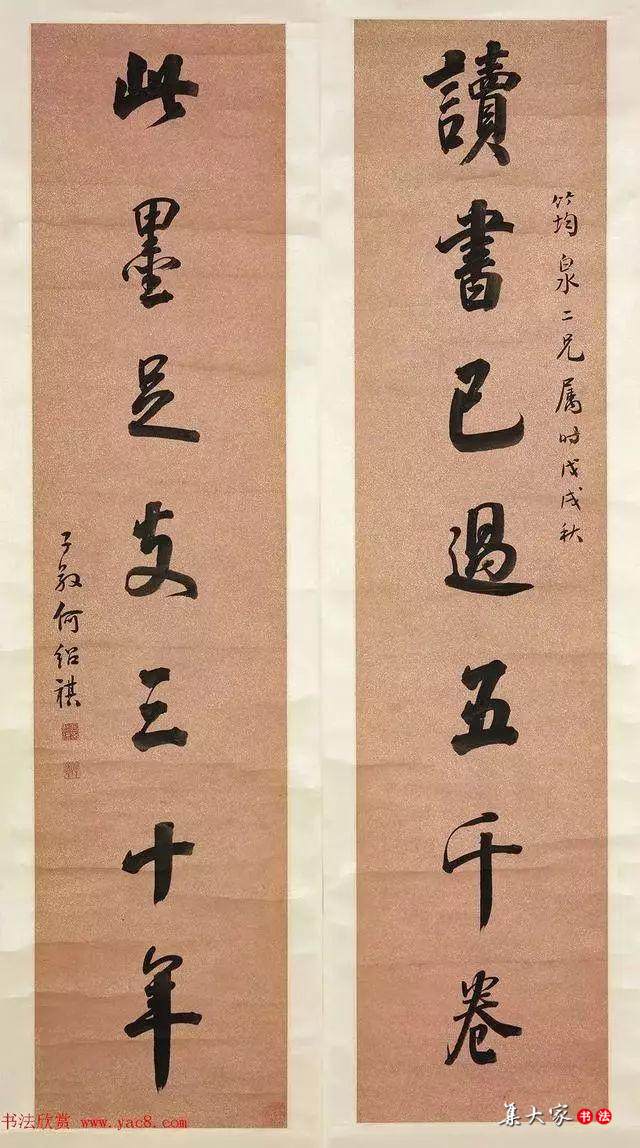 讀書已過五千卷
筠泉二兄属時戊戌秋
此墨足支三十年
子敬何紹祺
书法欣赏 www.yac8.com
集大家书法